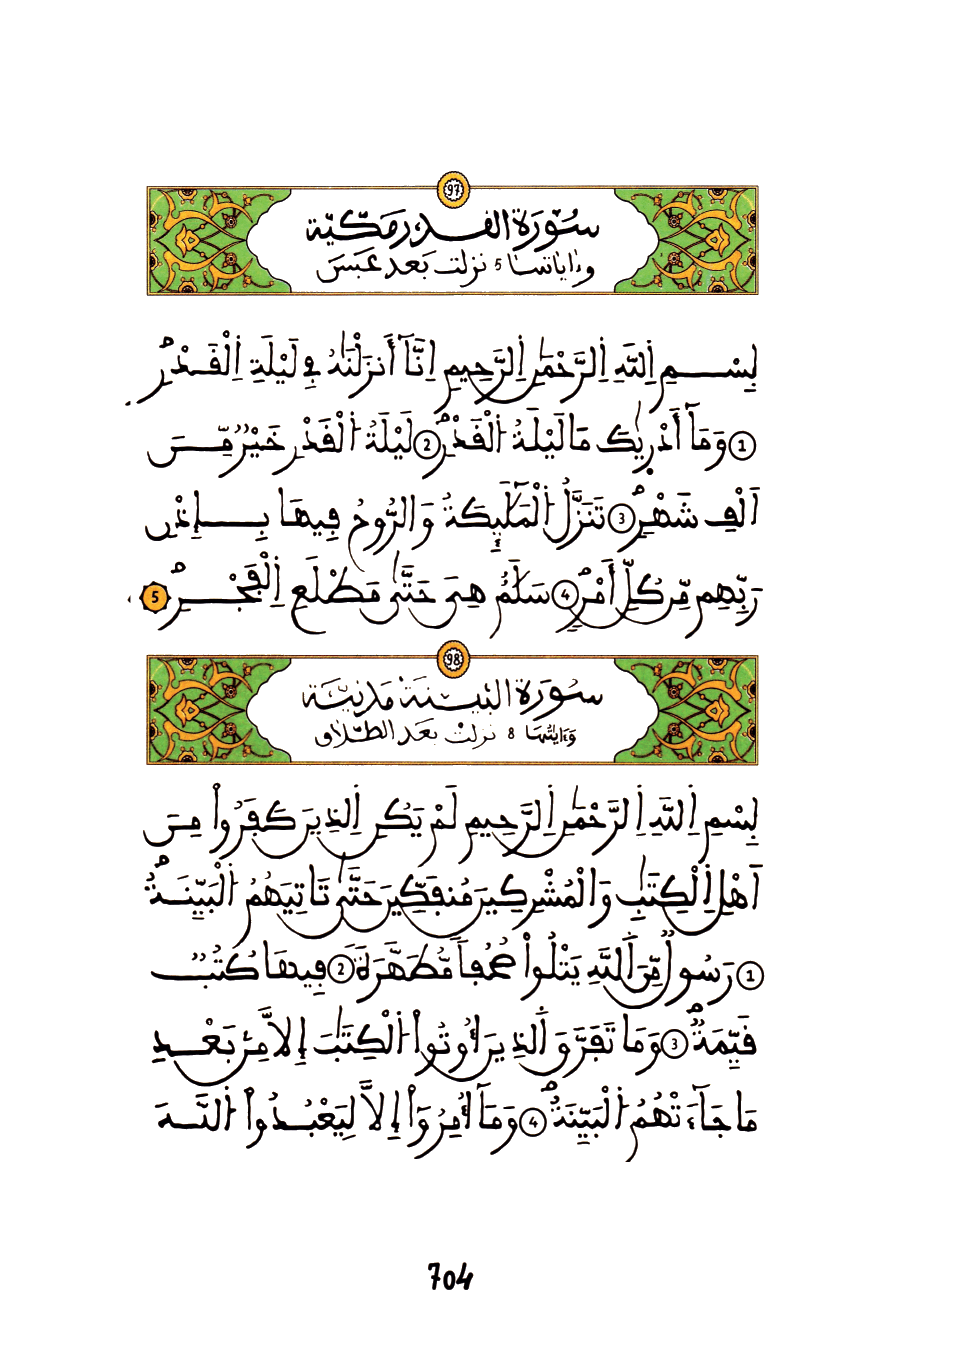 97
سُورَةُ القدر مَكِّيَّة
وءاياتها 5 نزلت بَعد عَبَسَ
بِسْمِ اِللَّهِ اِلرَّحْمَٰنِ اِلرَّحِيمِ اِنَّآ أَنزَلْنَٰهُ فِي لَيْلَةِ اِلْقَدْرِ
1 وَمَآ أَدْرِيٰكَ مَا لَيْلَةُ اُلْقَدْرِ 2 لَيْلَةُ اُلْقَدْرِ خَيْرٌ مِّنَ
اَلْفِ شَهْرٍ 3 تَنَزَّلُ اُلْمَلَٰٓئِكَةُ وَالرُّوحُ فِيهَا بِإِذْنِ
رَبِّهِم مِّن كُلِّ أَمْرٍ 4 سَلَٰمٌ هِيَ حَتَّىٰ مَطْلَعِ اِلْفَجْرِ 5
98
سُورَة البَيِّنَة مَدنيَّة
وَءَايَٰتُهَا 8 نزلتْ بعَد الطَّلَاق
بِسْمِ اِللَّهِ اِلرَّحْمَٰنِ اِلرَّحِيمِ لَمْ يَكُنِ اِلذِينَ كَفَرُواْ مِنَ
اَهْلِ اِلْكِتَٰبِ وَالْمُشْرِكِينَ مُنفَكِّينَ حَتَّىٰ تَاتِيَهُمُ اُلْبَيِّنَةُ
1 رَسُولٌ مِّنَ اَللَّهِ يَتْلُواْ صُحُفاً مُّطَهَّرَةً 2 فِيهَا كُتُبٌ
قَيِّمَةٌ 3 وَمَا تَفَرَّقَ اَلذِينَ أُوتُواْ اُلْكِتَٰبَ إِلَّا مِنۢ بَعْدِ
مَا جَآءَتْهُمُ اُلْبَيِّنَةُ 4 وَمَآ أُمِرُوٓاْ إِلَّا لِيَعْبُدُواْ اُللَّهَ
704